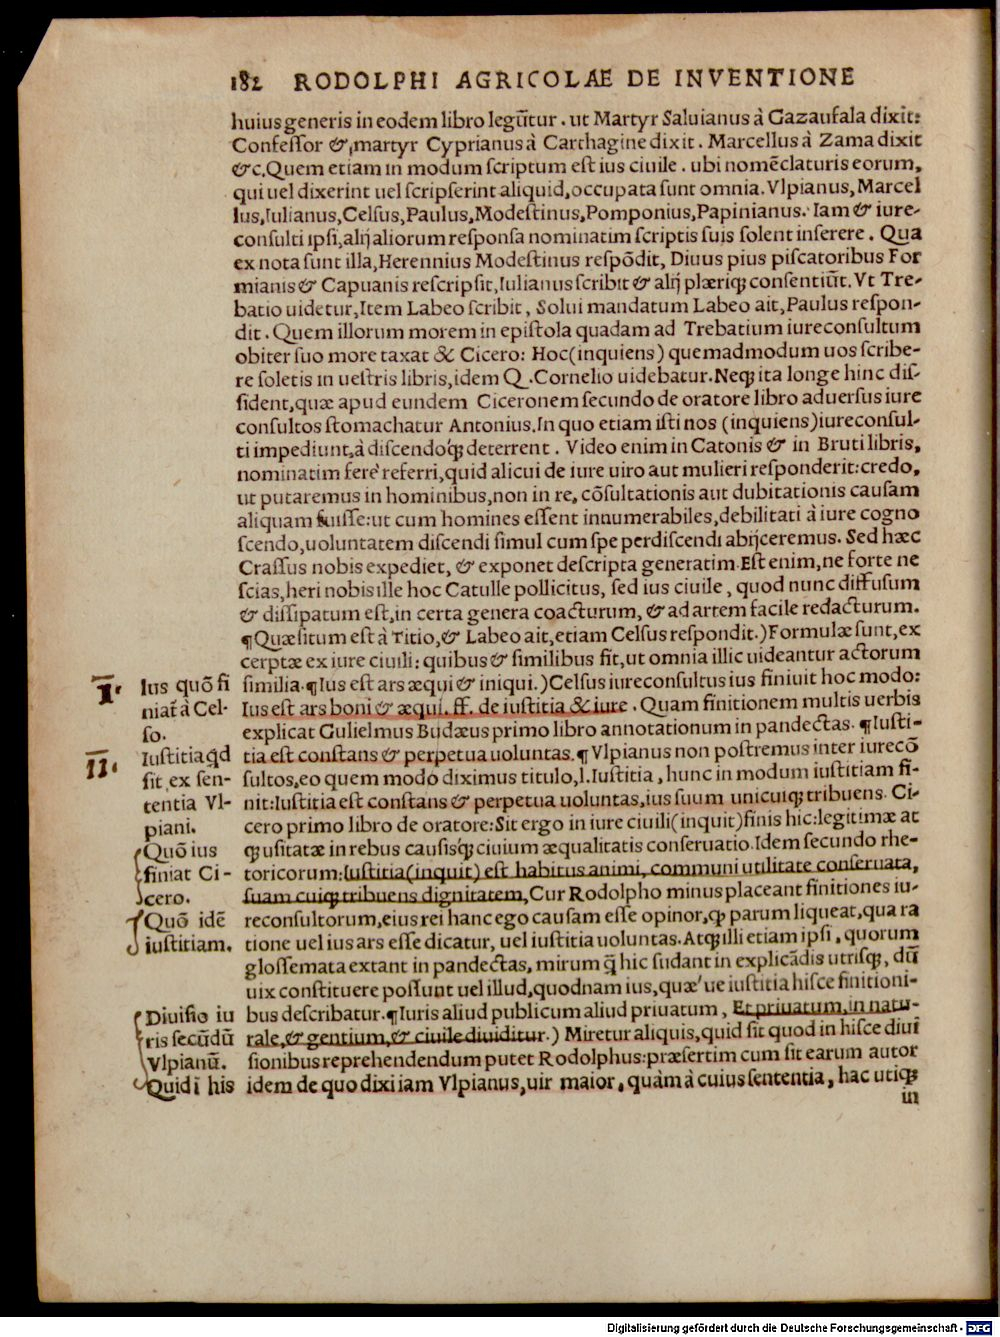 182 RODOLPHI AGRICOLAE DE INVENTIONE
huius generis in eodem libro legũtur. ut Martyr Saluianus à Gazaufala dixit:
Confeſſor & martyr Cyprianus à Carthagine dixit. Marcellus à Zama dixit
&c. Quem etiam in modum ſcriptum eſt ius ciuile. ubi nomẽclaturis eorum,
qui uel dixerint uel ſcripſerint aliquid, occupata ſunt omnia. Vlpianus, Marcel
lus, Iulianus, Celſus, Paulus, Modeſtinus, Pomponius, Papinianus. Iam & iure-
conſulti ipſi, alij aliorum reſponſa nominatim ſcriptis ſuis ſolent inſerere. Qua
ex nota ſunt illa, Herennius Modeſtinus reſpõdit, Diuus pius piſcatoribus For
mianis & Capuanis reſcripſit, Iulianus ſcribit & alij plæriqꝫ conſentiũt. Vt Tre-
batio uidetur, Item Labeo ſcribit, Solui mandatum Labeo ait, Paulus reſpon-
dit. Quem illorum morem in epiſtola quadam ad Trebatium iureconſultum
obiter ſuo more taxat & Cicero: Hoc (inquiens) quemadmodum uos ſcribe-
re ſoletis in ueſtris libris, idem Q. Cornelio uidebatur. Neqꝫ ita longe hinc diſ-
ſident, quæ apud eundem Ciceronem ſecundo de oratore libro aduerſus iure
conſultos ſtomachatur Antonius. In quo etiam iſti nos (inquiens) iureconſul-
ti impediunt, à diſcendoqꝫ deterrent. Video enim in Catonis & in Bruti libris,
nominatim ferè referri, quid alicui de iure uiro aut mulieri reſponderit: credo,
ut putaremus in hominibus, non in re, cõſultationis aut dubitationis cauſam
aliquam fuiſſe: ut cum homines eſſent innumerabiles, debilitati à iure cogno
ſcendo, uoluntatem diſcendi ſimul cum ſpe perdiſcendi abijceremus. Sed hæc
Craſſus nobis expediet, & exponet deſcripta generatim. Eſt enim, ne forte ne
ſcias, heri nobis ille hoc Catulle pollicitus, ſed ius ciuile, quod nunc diffuſum
& diſſipatum eſt, in certa genera coacturum, & ad artem facile redacturum.
¶Quæſitum eſt à Titio, & Labeo ait, etiam Celſus reſpondit.) Formulæ ſunt, ex
cerptæ ex iure ciuili: quibus & ſimilibus fit, ut omnia illic uideantur actorum
ſimilia. ¶Ius eſt ars æqui & iniqui.) Celſus iureconſultus ius finiuit hoc modo:
Ius eſt ars boni & æqui. ff. de iuſtitia & iure. Quam finitionem multis uerbis
explicat Gulielmus Budæus primo libro annotationum in pandectas. ¶Iuſti-
tia eſt conſtans & perpetua uoluntas. ¶Vlpianus non poſtremus inter iurecõ
ſultos, eo quem modo diximus titulo, l. Iuſtitia, hunc in modum iuſtitiam fi-
nit: Iuſtitia eſt conſtans & perpetua uoluntas, ius ſuum unicuiqꝫ tribuens. Ci-
cero primo libro de oratore: Sit ergo in iure ciuili (inquit) finis hic: legitimæ at
qꝫ uſitatæ in rebus cauſisqꝫ ciuium æqualitatis conſeruatio. Idem ſecundo rhe-
toricorum: Iuſtitia (inquit) eſt habitus animi, communi utilitate conſeruata,
ſuam cuiqꝫ tribuens dignitatem, Cur Rodolpho minus placeant finitiones iu-
reconſultorum, eius rei hanc ego cauſam eſſe opinor, qꝫ parum liqueat, qua ra
tione uel ius ars eſſe dicatur, uel iuſtitia uoluntas. Atqꝫ illi etiam ipſi, quorum
gloſſemata extant in pandectas, mirum q̃ hic ſudant in explicãdis utriſqꝫ, dũ
uix conſtituere poſſunt uel illud, quodnam ius, quæ ue iuſtitia hiſce finitioni-
bus deſcribatur. ¶Iuris aliud publicum aliud priuatum, Et priuatum, in natu-
rale, & gentium, & ciuile diuiditur.) Miretur aliquis, quid ſit quod in hiſce diui
ſionibus reprehendendum putet Rodolphus: præſertim cum ſit earum autor
idem de quo dixi iam Vlpianus, uir maior, quàm à cuius ſententia, hac utiqꝫ
in
I.
Ius quõ fi
niat̃ à Cel-
ſo.
II.
Iuſtitia qd
ſit ex ſen-
tentia Vl-
piani.
Quõ ius
finiat Ci-
cero.
Quõ idẽ
iuſtitiam.
Diuiſio iu
ris ſecũdũ
Vlpianũ.
Quid ĩ his
Digitalisierung gefördert durch die Deutsche Forschungsgemeinschaft - DFG